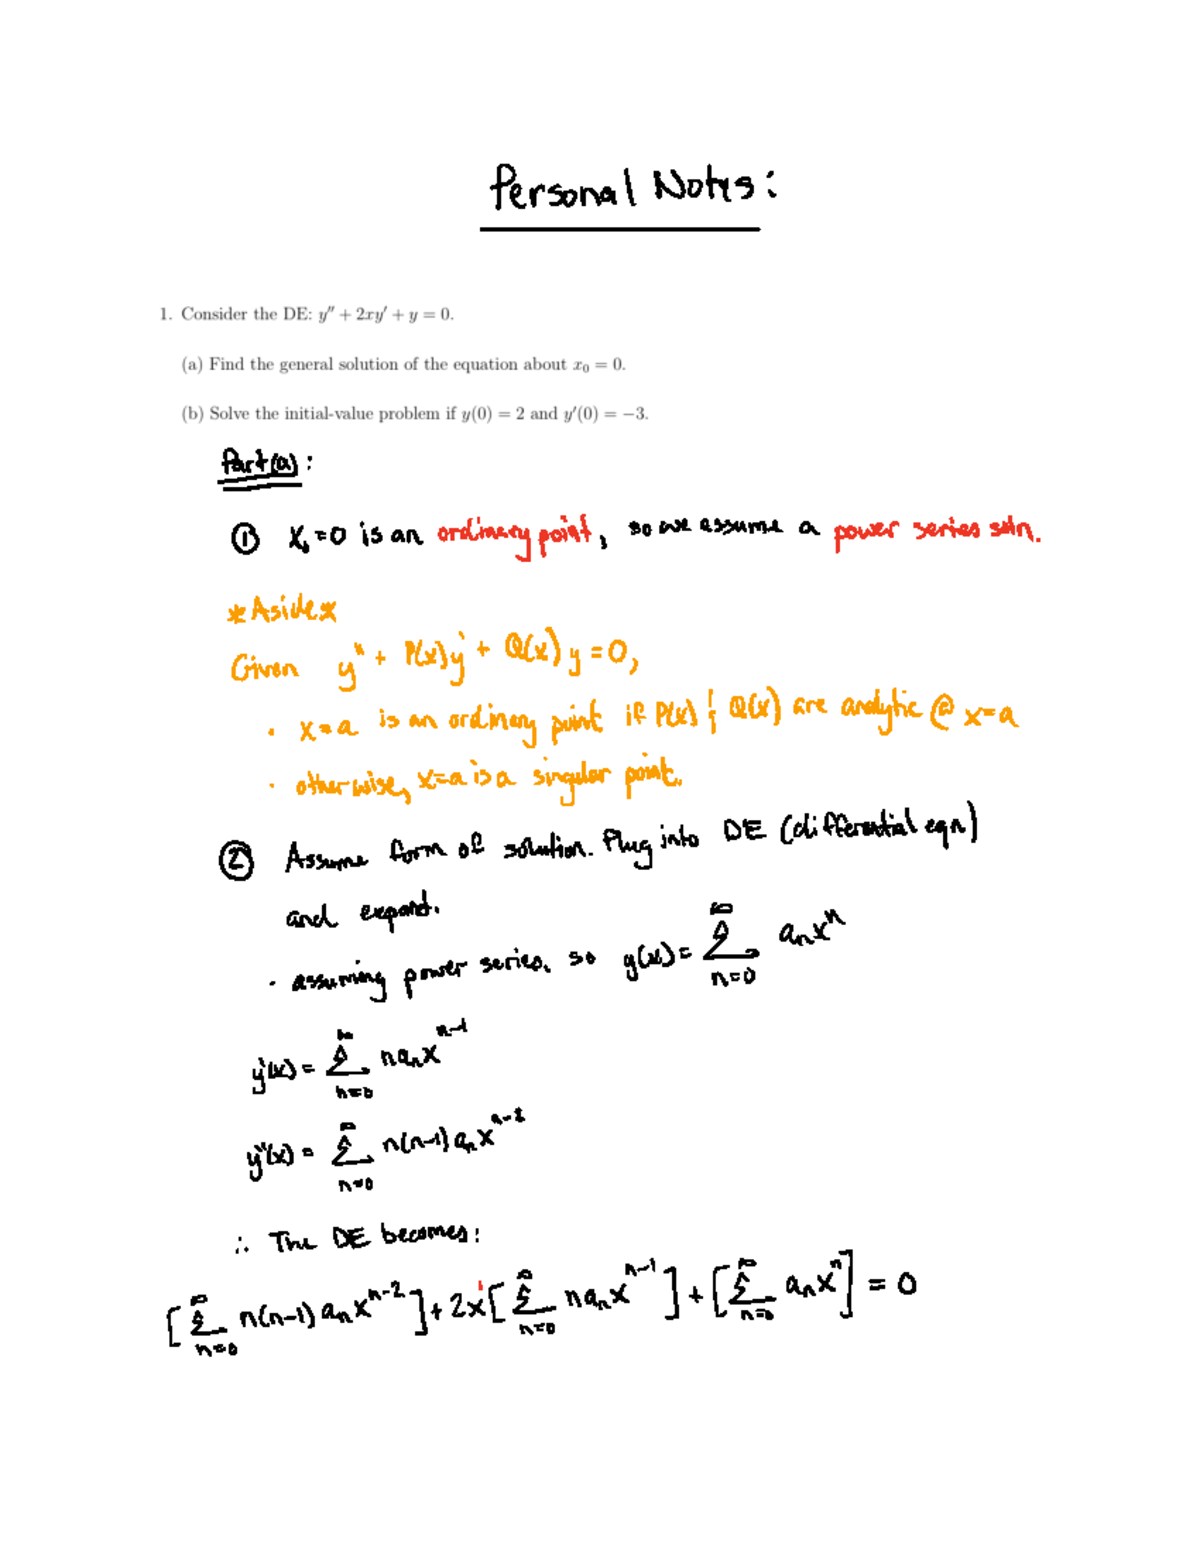 Personal Notes:
1. Consider the DE: y″ + 2xy′ + y = 0.
(a) Find the general solution of the equation about x₀ = 0.
(b) Solve the initial-value problem if y(0) = 2 and y′(0) = −3.
Part(a):
① x₀=0 is an ordinary point, so we assume a power series soln.
*Aside*
Given y″ + P(x)y′ + Q(x)y = 0,
· x=a is an ordinary point if P(x) & Q(x) are analytic @ x=a
· otherwise, x=a is a singular point.
② Assume form of solution. Plug into DE (differential eqn)
and expand.
· assuming power series, so y(x) = ∑_{n=0}^{∞} aₙxⁿ
y′(x) = ∑_{n=0}^{∞} naₙx^{n-1}
y″(x) = ∑_{n=0}^{∞} n(n-1)aₙx^{n-2}
∴ The DE becomes:
[∑_{n=0}^{∞} n(n-1)aₙx^{n-2}] + 2x¹[∑_{n=0}^{∞} naₙx^{n-1}] + [∑_{n=0}^{∞} aₙxⁿ] = 0